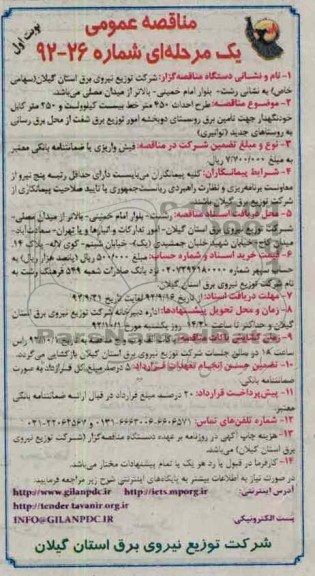 مناقصه عمومی
یک مرحله‌ای شماره ۲۶-۹۲
نوبت اول
۱- نام و نشانی دستگاه مناقصه‌گزار: شرکت توزیع نیروی برق استان گیلان(سهامی
خاص) به نشانی رشت- بلوار امام خمینی- بالاتر از میدان مصلی می‌باشد.
۲- موضوع مناقصه: طرح احداث ۴۵۰ متر خط بیست کیلوولت و ۲۵۰ متر کابل
خودنگهدار جهت تامین برق روستای دوبخشه امور توزیع برق شفت از محل برق رسانی
به روستاهای جدید (توانیر)
۳- نوع و مبلغ تضمین شرکت در مناقصه: فیش واریزی یا ضمانتنامه بانکی معتبر
به مبلغ ۷/۷۰۰/۰۰۰ ریال.
۴- شرایط پیمانکاران: کلیه پیمانکاران می‌بایست دارای حداقل رتبه پنج نیرو از
معاونت برنامه‌ریزی و نظارت راهبردی ریاست‌جمهوری یا تایید صلاحیت پیمانکاری از
شرکت توزیع برق گیلان باشند.
۵- محل دریافت اسناد مناقصه: رشت- بلوار امام خمینی- بالاتر از میدان مصلی-
شرکت توزیع نیروی برق استان گیلان- امور تدارکات و انبارها و یا تهران- سعادت‌آباد-
میدان کاج- خیابان شهید خلبان جمشیدی (یک)- خیابان ششم- کوی لاله- پلاک ۱۴.
۶- قیمت خرید اسناد و شماره حساب: مبلغ ۵۰۰/۰۰۰ ریال (پانصد هزار ریال) به
حساب سپهر شماره ۰۲۰۷۳۲۹۶۱۸۰۰۰ نزد بانک صادرات شعبه ۵۴۹ فرهنگ رشت به
نام شرکت توزیع نیروی برق استان گیلان.
۷- مهلت دریافت اسناد: از تاریخ ۹۲/۹/۱۶ لغایت تاریخ ۹۲/۹/۲۱
۸- زمان و محل تحویل پیشنهادها: اداره دبیرخانه شرکت توزیع نیروی برق استان
گیلان و حداکثر تا ساعت ۱۴/۳۰ روز یکشنبه مورخ ۹۲/۱۰/۱
ساعت ۱۸ در سالن جلسات شرکت توزیع نیروی برق استان گیلان بازگشایی می‌گردد.
۱۰- تضمین حسن انجام تعهدات قرارداد: ۵ درصد مبلغ کل قرارداد به صورت
ضمانتنامه بانکی.
۱۱- پیش‌پرداخت قرارداد: ۲۰ درصد مبلغ قرارداد در قبال ارائه ضمانتنامه بانکی
معتبر.
۱۲- شماره تلفن‌های تماس:
۱۳- هزینه چاپ آگهی در روزنامه بر عهده دستگاه مناقصه‌گزار (شرکت توزیع نیروی
برق استان گیلان) می‌باشد.
۱۴- کارفرما در قبول یا رد هر یک یا تمام پیشنهادات مختار می‌باشد.
در صورت نیاز به اطلاعات بیشتر به پایگاه‌های اینترنتی شرح زیر مراجعه فرمایید.
آدرس اینترنتی: http://iets.mporg.ir http://www.gilanpdc.ir
http://tender.tavanir.org.ir
پست الکترونیکی INFO@GILANPDC.IR
شرکت توزیع نیروی برق استان گیلان